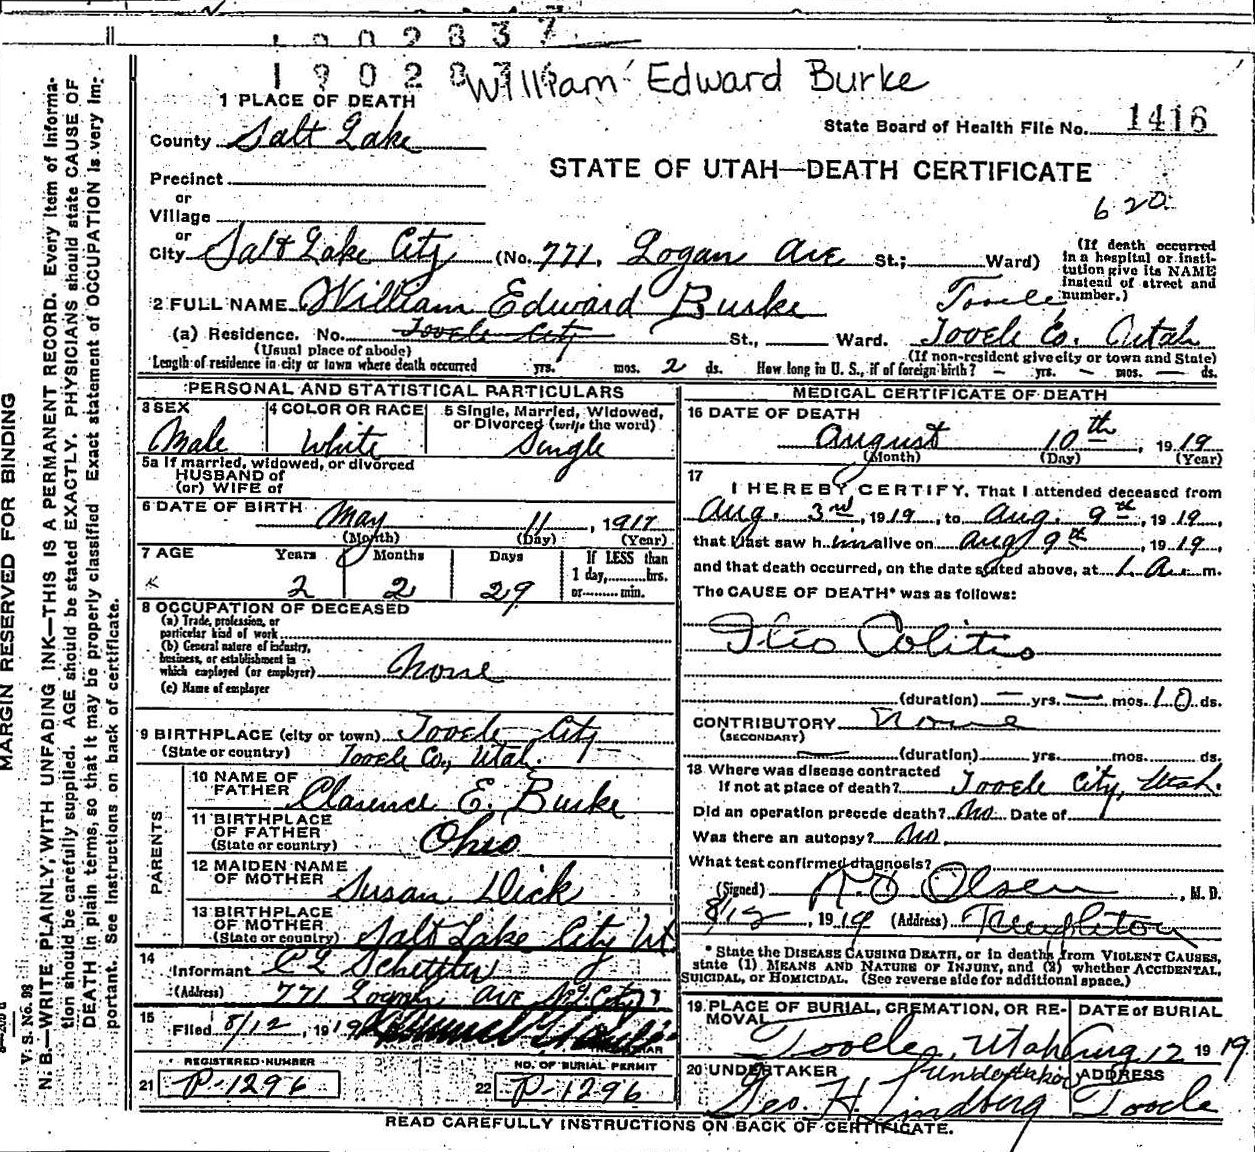 1902837
190283
William Edward Burke
1 PLACE OF DEATH
County Salt Lake
State Board of Health File No. 1416
STATE OF UTAH—DEATH CERTIFICATE
620
Precinct
or
Village
or
City Salt Lake City (No. 771, Logan Ave St.; Ward)
(If death occurred in a hospital or institution give its NAME instead of street and number.)
2 FULL NAME William Edward Burke
Tooele,
(a) Residence. No. Tooele City St., Ward. Tooele Co. Utah
(Usual place of abode) (If non-resident give city or town and State)
Length of residence in city or town where death occurred yrs. mos. 2 ds. How long in U. S., if of foreign birth? — yrs. — mos. — ds.
PERSONAL AND STATISTICAL PARTICULARS
3 SEX Male
4 COLOR OR RACE White
5 Single, Married, Widowed, or Divorced (write the word) Single
5a If married, widowed, or divorced
HUSBAND of
(or) WIFE of
6 DATE OF BIRTH May 11, 1917
(Month) (Day) (Year)
7 AGE Years Months Days If LESS than
2 2 29 1 day,........hrs.
or........min.
8 OCCUPATION OF DECEASED
(a) Trade, profession, or
particular kind of work
(b) General nature of industry,
business, or establishment in
which employed (or employer) None
(c) Name of employer
9 BIRTHPLACE (city or town) Tooele City
(State or country) Tooele Co., Utah.
PARENTS
10 NAME OF FATHER Clarence E. Burke
11 BIRTHPLACE OF FATHER (State or country) Ohio
12 MAIDEN NAME OF MOTHER Susan Dick
13 BIRTHPLACE OF MOTHER (State or country) Salt Lake City Ut
14 Informant
(Address) 771 Logan Ave
15 Filed 8/12, 1919
REGISTERED NUMBER
21 P-1296
NO. OF BURIAL PERMIT
22 P-1296
MEDICAL CERTIFICATE OF DEATH
16 DATE OF DEATH
August 10th, 1919
(Month) (Day) (Year)
17
I HEREBY CERTIFY, That I attended deceased from
Aug. 3rd, 1919, to Aug. 9th, 1919,
that I last saw him alive on Aug 9th, 1919,
and that death occurred, on the date stated above, at 1 A. m.
The CAUSE OF DEATH* was as follows:
Ileo Colitis
(duration) — yrs. — mos. 10 ds.
CONTRIBUTORY None
(SECONDARY)
(duration) yrs. mos. ds.
18 Where was disease contracted
if not at place of death? Tooele City, Utah.
Did an operation precede death? No Date of
Was there an autopsy? No.
What test confirmed diagnosis?
(Signed) Olsen, M. D.
8/12, 1919 (Address)
* State the DISEASE CAUSING DEATH, or in deaths from VIOLENT CAUSES, state (1) MEANS AND NATURE OF INJURY, and (2) whether ACCIDENTAL, SUICIDAL, or HOMICIDAL. (See reverse side for additional space.)
19 PLACE OF BURIAL, CREMATION, OR REMOVAL Tooele, Utah
DATE of BURIAL Aug 12 1919
20 UNDERTAKER Geo. H. Lindberg undertaker
ADDRESS Tooele
READ CAREFULLY INSTRUCTIONS ON BACK OF CERTIFICATE.
MARGIN RESERVED FOR BINDING
V. S. No. 98
N. B.—WRITE PLAINLY, WITH UNFADING INK—THIS IS A PERMANENT RECORD. Every item of information should be carefully supplied. AGE should be stated EXACTLY. PHYSICIANS should state CAUSE OF DEATH in plain terms, so that it may be properly classified. Exact statement of OCCUPATION is very important. See instructions on back of certificate.